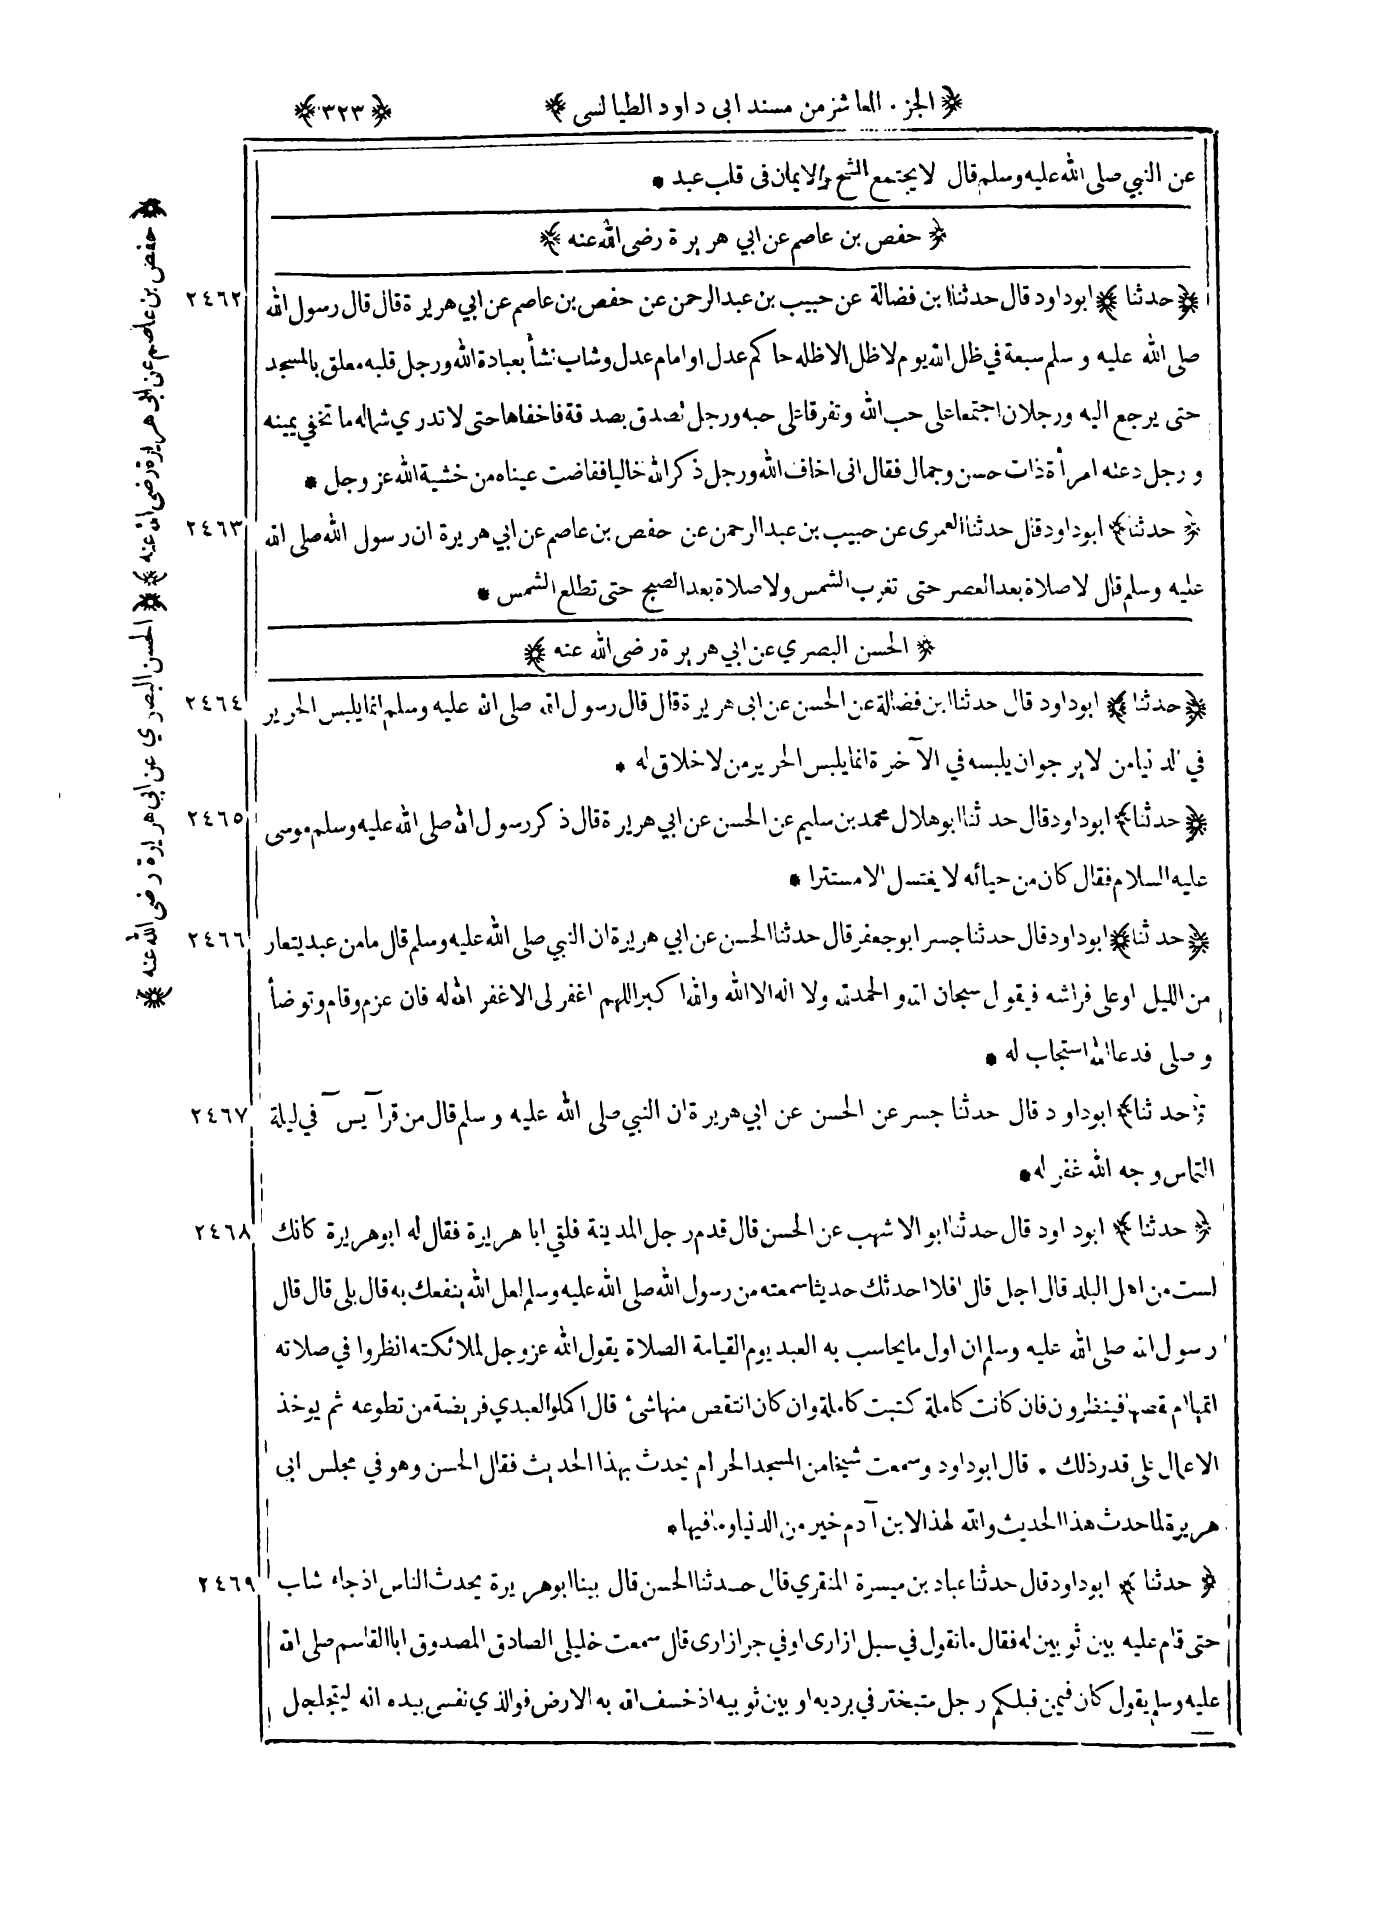 ﴿ الجزء العاشر من مسند ابى داود الطيالسى ﴾ ﴿ ٣٢٣ ﴾
عن النبي صلى الله عليه وسلم قال لا يجتمع الشح والايمان فى قلب عبد *
﴿ حفص بن عاصم عن ابي هريرة رضى الله عنه ﴾
٢٤٦٢ ﴿ حدثنا ﴾ ابو داود قال حدثنا ابن فضالة عن حبيب بن عبد الرحمن عن حفص بن عاصم عن ابي هريرة قال قال رسول الله
صلى الله عليه و سلم سبعة في ظل الله يوم لا ظل الا ظله حاكم عدل او امام عدل وشاب نشأ بعبادة الله ورجل قلبه معلق بالمسجد
حتى يرجع اليه ورجلان اجتمعا على حب الله وتفرقا على حبه ورجل تصدق بصدقة فاخفاها حتى لا تدري شماله ما تخفي يمينه
و رجل دعته امرأة ذات حسن وجمال فقال انى اخاف الله ورجل ذكر الله خاليا ففاضت عيناه من خشية الله عز وجل *
٢٤٦٣ ﴿ حدثنا ﴾ ابو داود قال حدثنا العمرى عن حبيب بن عبد الرحمن عن حفص بن عاصم عن ابي هريرة ان رسول الله صلى الله
عليه وسلم قال لا صلاة بعد العصر حتى تغرب الشمس ولا صلاة بعد الصبح حتى تطلع الشمس *
﴿ الحسن البصري عن ابي هريرة رضى الله عنه ﴾
٢٤٦٤ ﴿ حدثنا ﴾ ابو داود قال حدثنا ابن فضالة عن الحسن عن ابى هريرة قال قال رسول الله صلى الله عليه وسلم انما يلبس الحرير
في الدنيا من لا يرجو ان يلبسه في الآخرة انما يلبس الحرير من لا خلاق له *
٢٤٦٥ ﴿ حدثنا ﴾ ابو داود قال حدثنا ابو هلال محمد بن سليم عن الحسن عن ابي هريرة قال ذكر رسول الله صلى الله عليه وسلم موسى
عليه السلام فقال كان من حيائه لا يغتسل الا مستترا *
٢٤٦٦ ﴿ حدثنا ﴾ ابو داود قال حدثنا جسر ابو جعفر قال حدثنا الحسن عن ابي هريرة ان النبي صلى الله عليه وسلم قال ما من عبد يتعار
من الليل او على فراشه فيقول سبحان الله و الحمد لله ولا اله الا الله والله اكبر اللهم اغفر لى الا غفر الله له فان عزم وقام وتوضأ
و صلى فدعا الله استجاب له *
٢٤٦٧ ﴿ حدثنا ﴾ ابو داود قال حدثنا جسر عن الحسن عن ابي هريرة ان النبي صلى الله عليه و سلم قال من قرأ يس في ليلة
التماس وجه الله غفر له *
٢٤٦٨ ﴿ حدثنا ﴾ ابو داود قال حدثنا ابو الاشهب عن الحسن قال قدم رجل المدينة فلقي ابا هريرة فقال له ابو هريرة كانك
لست من اهل البلد قال اجل قال افلا احدثك حديثا سمعته من رسول الله صلى الله عليه وسلم لعل الله ينفعك به قال بلى قال قال
رسول الله صلى الله عليه وسلم ان اول ما يحاسب به العبد يوم القيامة الصلاة يقول الله عز وجل لملائكته انظروا في صلاته
اتمها ام نقصها فينظرون فان كانت كاملة كتبت كاملة وان كان انتقص منها شئ قال اكملوا لعبدي فريضة من تطوعه ثم يوخذ
الاعمال على قدر ذلك . قال ابو داود وسمعت شيخا من المسجد الحرام يحدث بهذا الحديث فقال الحسن وهو في مجلس ابى
هريرة لما حدث هذا الحديث والله لهذا لابن آدم خير من الدنيا وما فيها *
٢٤٦٩ ﴿ حدثنا ﴾ ابو داود قال حدثنا عباد بن ميسرة المنقري قال حدثنا الحسن قال بينا ابو هريرة يحدث الناس اذ جاء شاب
حتى قام عليه بين ثوبين له فقال ما تقول في سبل ازارى او في جر ازارى قال سمعت خليلى الصادق المصدوق ابا القاسم صلى الله
عليه وسلم يقول كان فيمن قبلكم رجل متبختر في برديه او بين ثوبيه اذ خسف الله به الارض فوالذي نفسى بيده انه ليتجلجل
﴿ حفص بن عاصم عن ابى هريرة رضى الله عنه ﴾ ﴿ الحسن البصري عن ابي هريرة رضى الله عنه ﴾